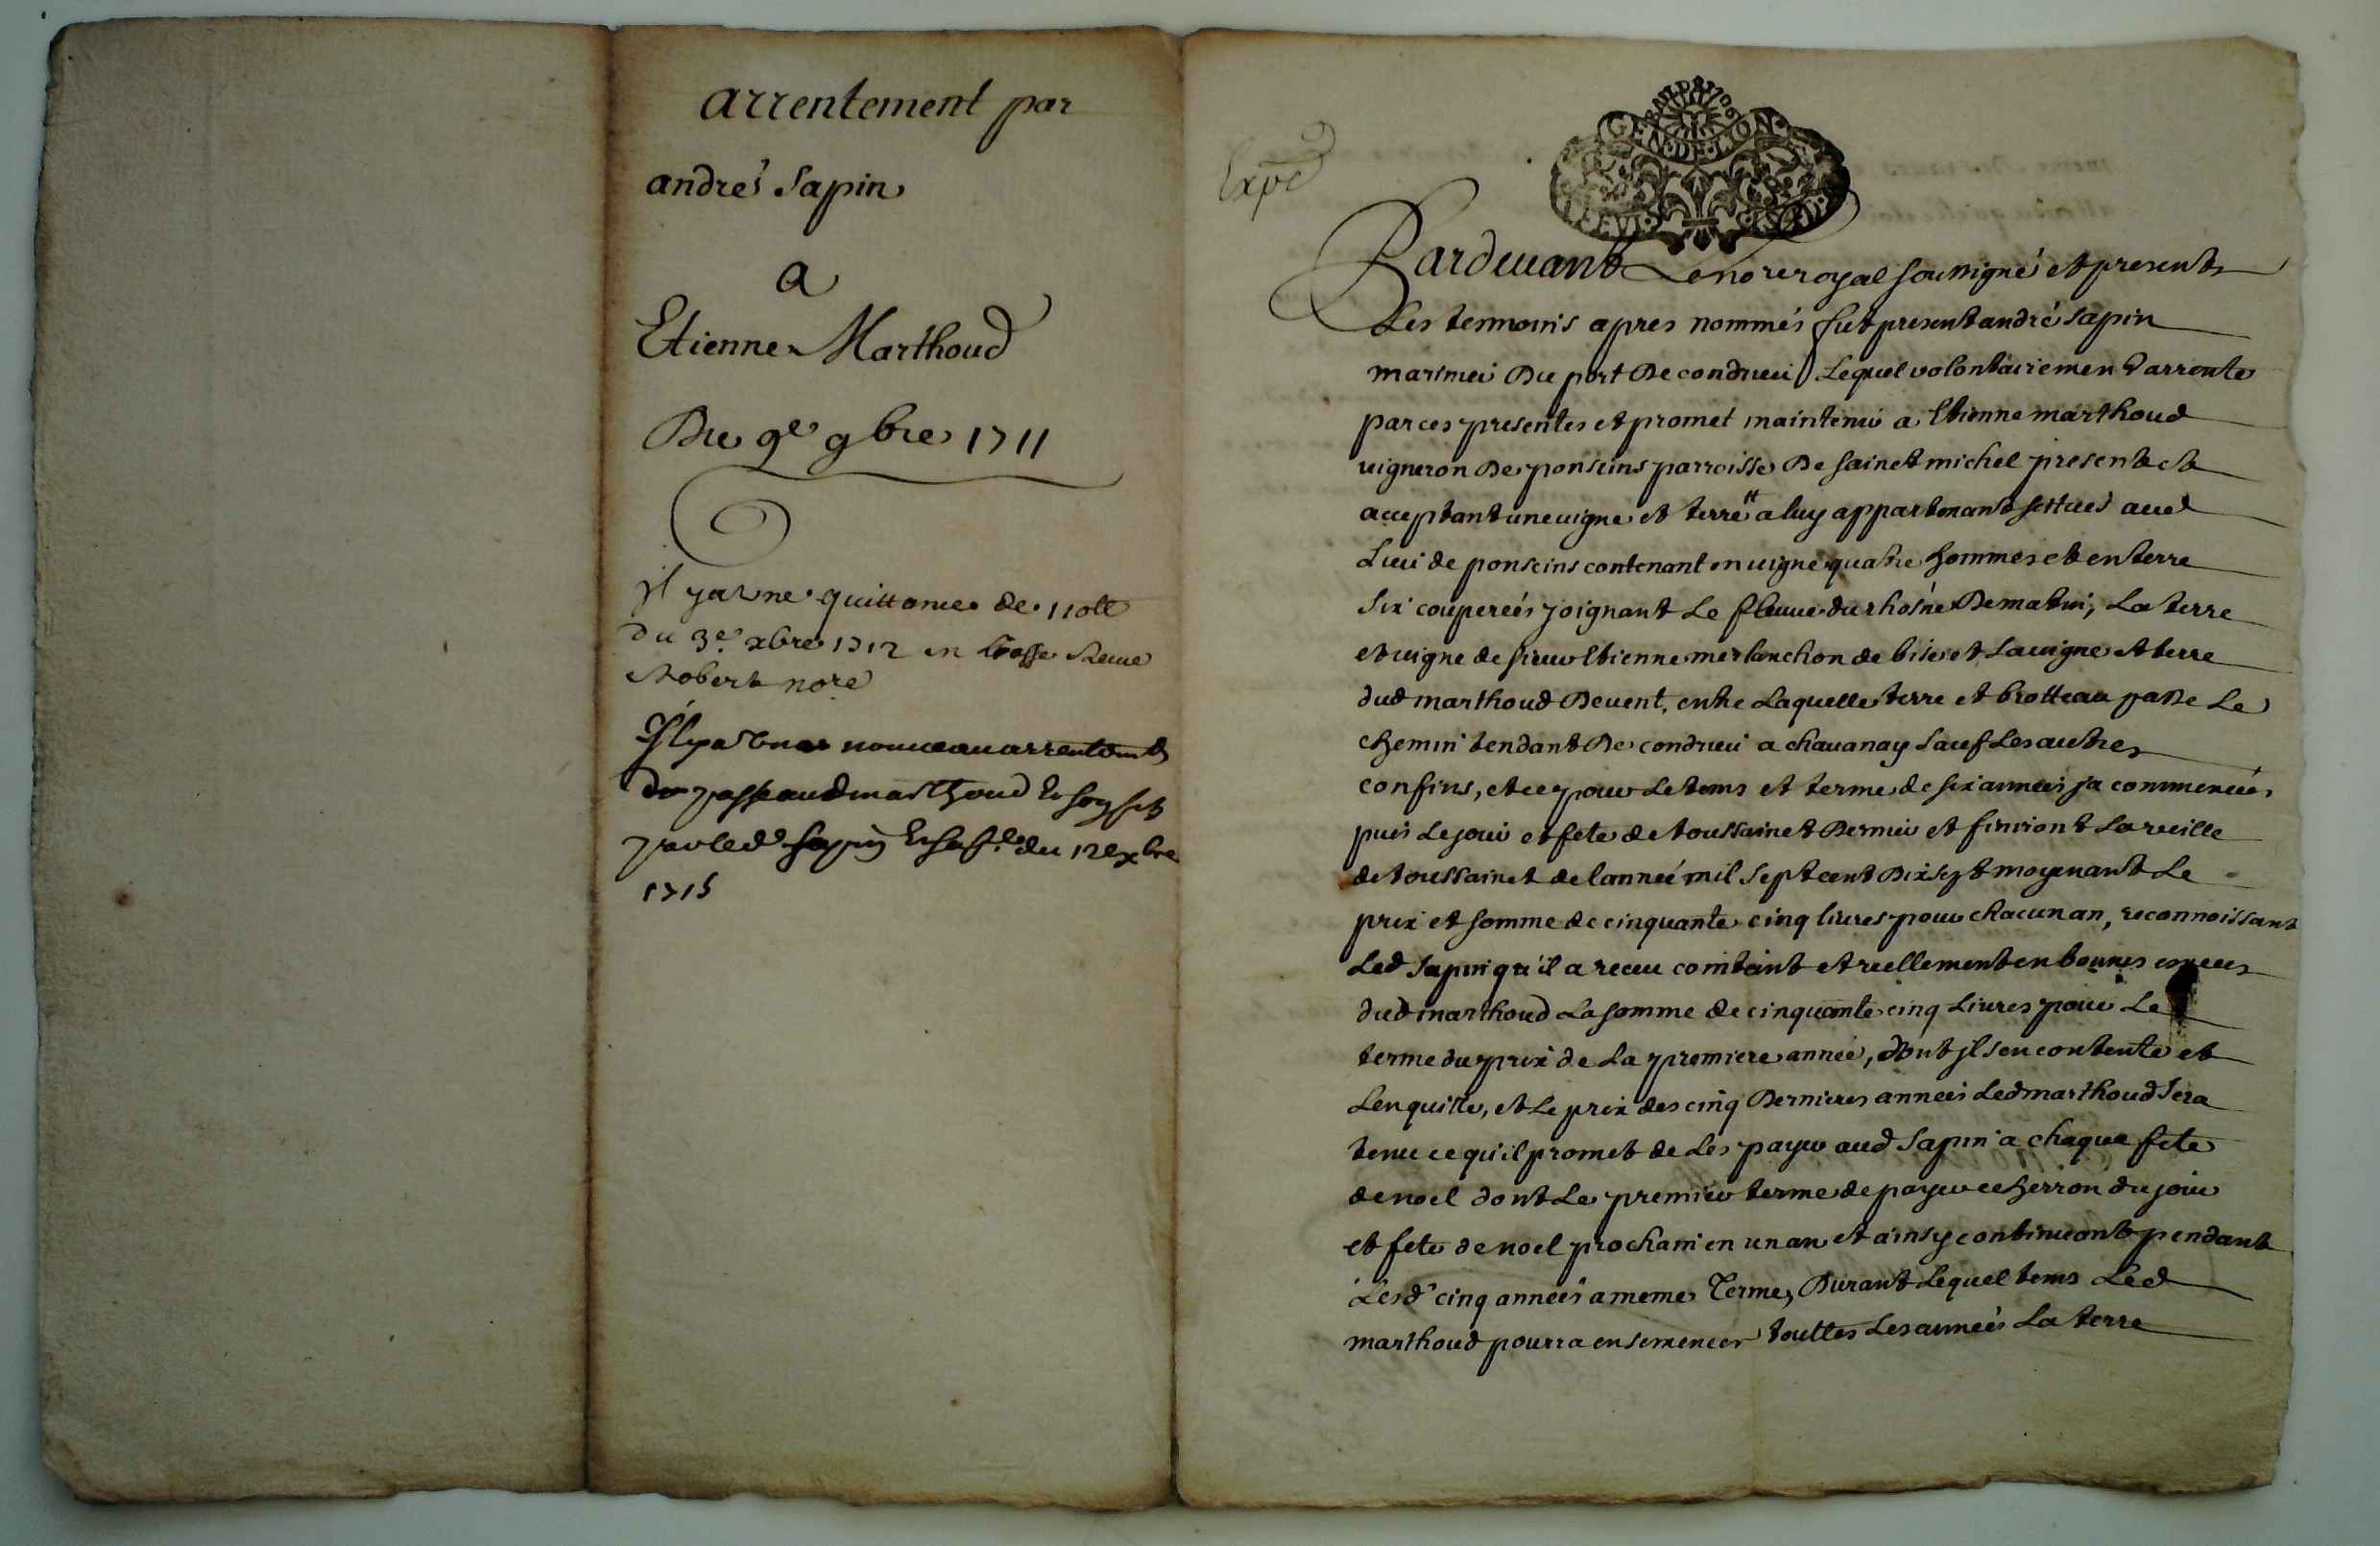 arrentement par
andré Sapin
a
Etienne Marthoud
Du 9e 9bre 1711
jl ya une quittance de 110ll
du 3e. xbre 1712 en liasse Receue
Robert nore
Jl y a un nouveau arrentemt
passé aud marthoud
par led Sapin du 12e xbre
1715
Expé
GEN·DE·LION
Pardeuant Le nore royal soussigné et presents
Les temoins apres nommés fut present andré Sapin
marinier Du port De condrieu Lequel volontairement arrente
par ces presentes et promet maintenir a Etienne marthoud
uigneron De ponseins parroisse De sainct michel present et
acceptant une uigne et terre a luy appartenant scittués aud
Lieu de ponseins contenant en uigne quatre hommes et en terre
Six couperées joignant Le fleuue du rhosne De matin, La terre
et uigne de sieur Etienne merlanchon de bise et La uigne et terre
dud marthoud De uent, entre Laquelle terre et brotteau passe Le
chemin tendant De condrieu a chauanay sauf Les autres
confins, et ce pour Le tems et terme de six années ja commencées
puis Le jour et fete de toussainct Dernier et finiront La veille
de toussainct de lannée mil Sept cent Dix sept moyenant Le
prix et somme de cinquante cinq liures pour chacun an, reconnoissant
Led Sapin qu'il a receu comtant et reellement en bonnes especes
dud marthoud La somme de cinquante cinq Liures pour Le
terme du prix de La premiere année, dont jl s'en contente et
L'en quitte, et Le prix des cinq Dernieres années Led marthoud Sera
tenu ce qu'il promet de Les payer aud Sapin a chaque fete
de noel dont Le premier terme de payer echerron du jour
et fete de noel prochain en un an et ainsy continuant pendant
Lesd cinq années a meme Terme, Durant Lequel tems Led
marthoud pourra ensemencer touttes Les années La terre